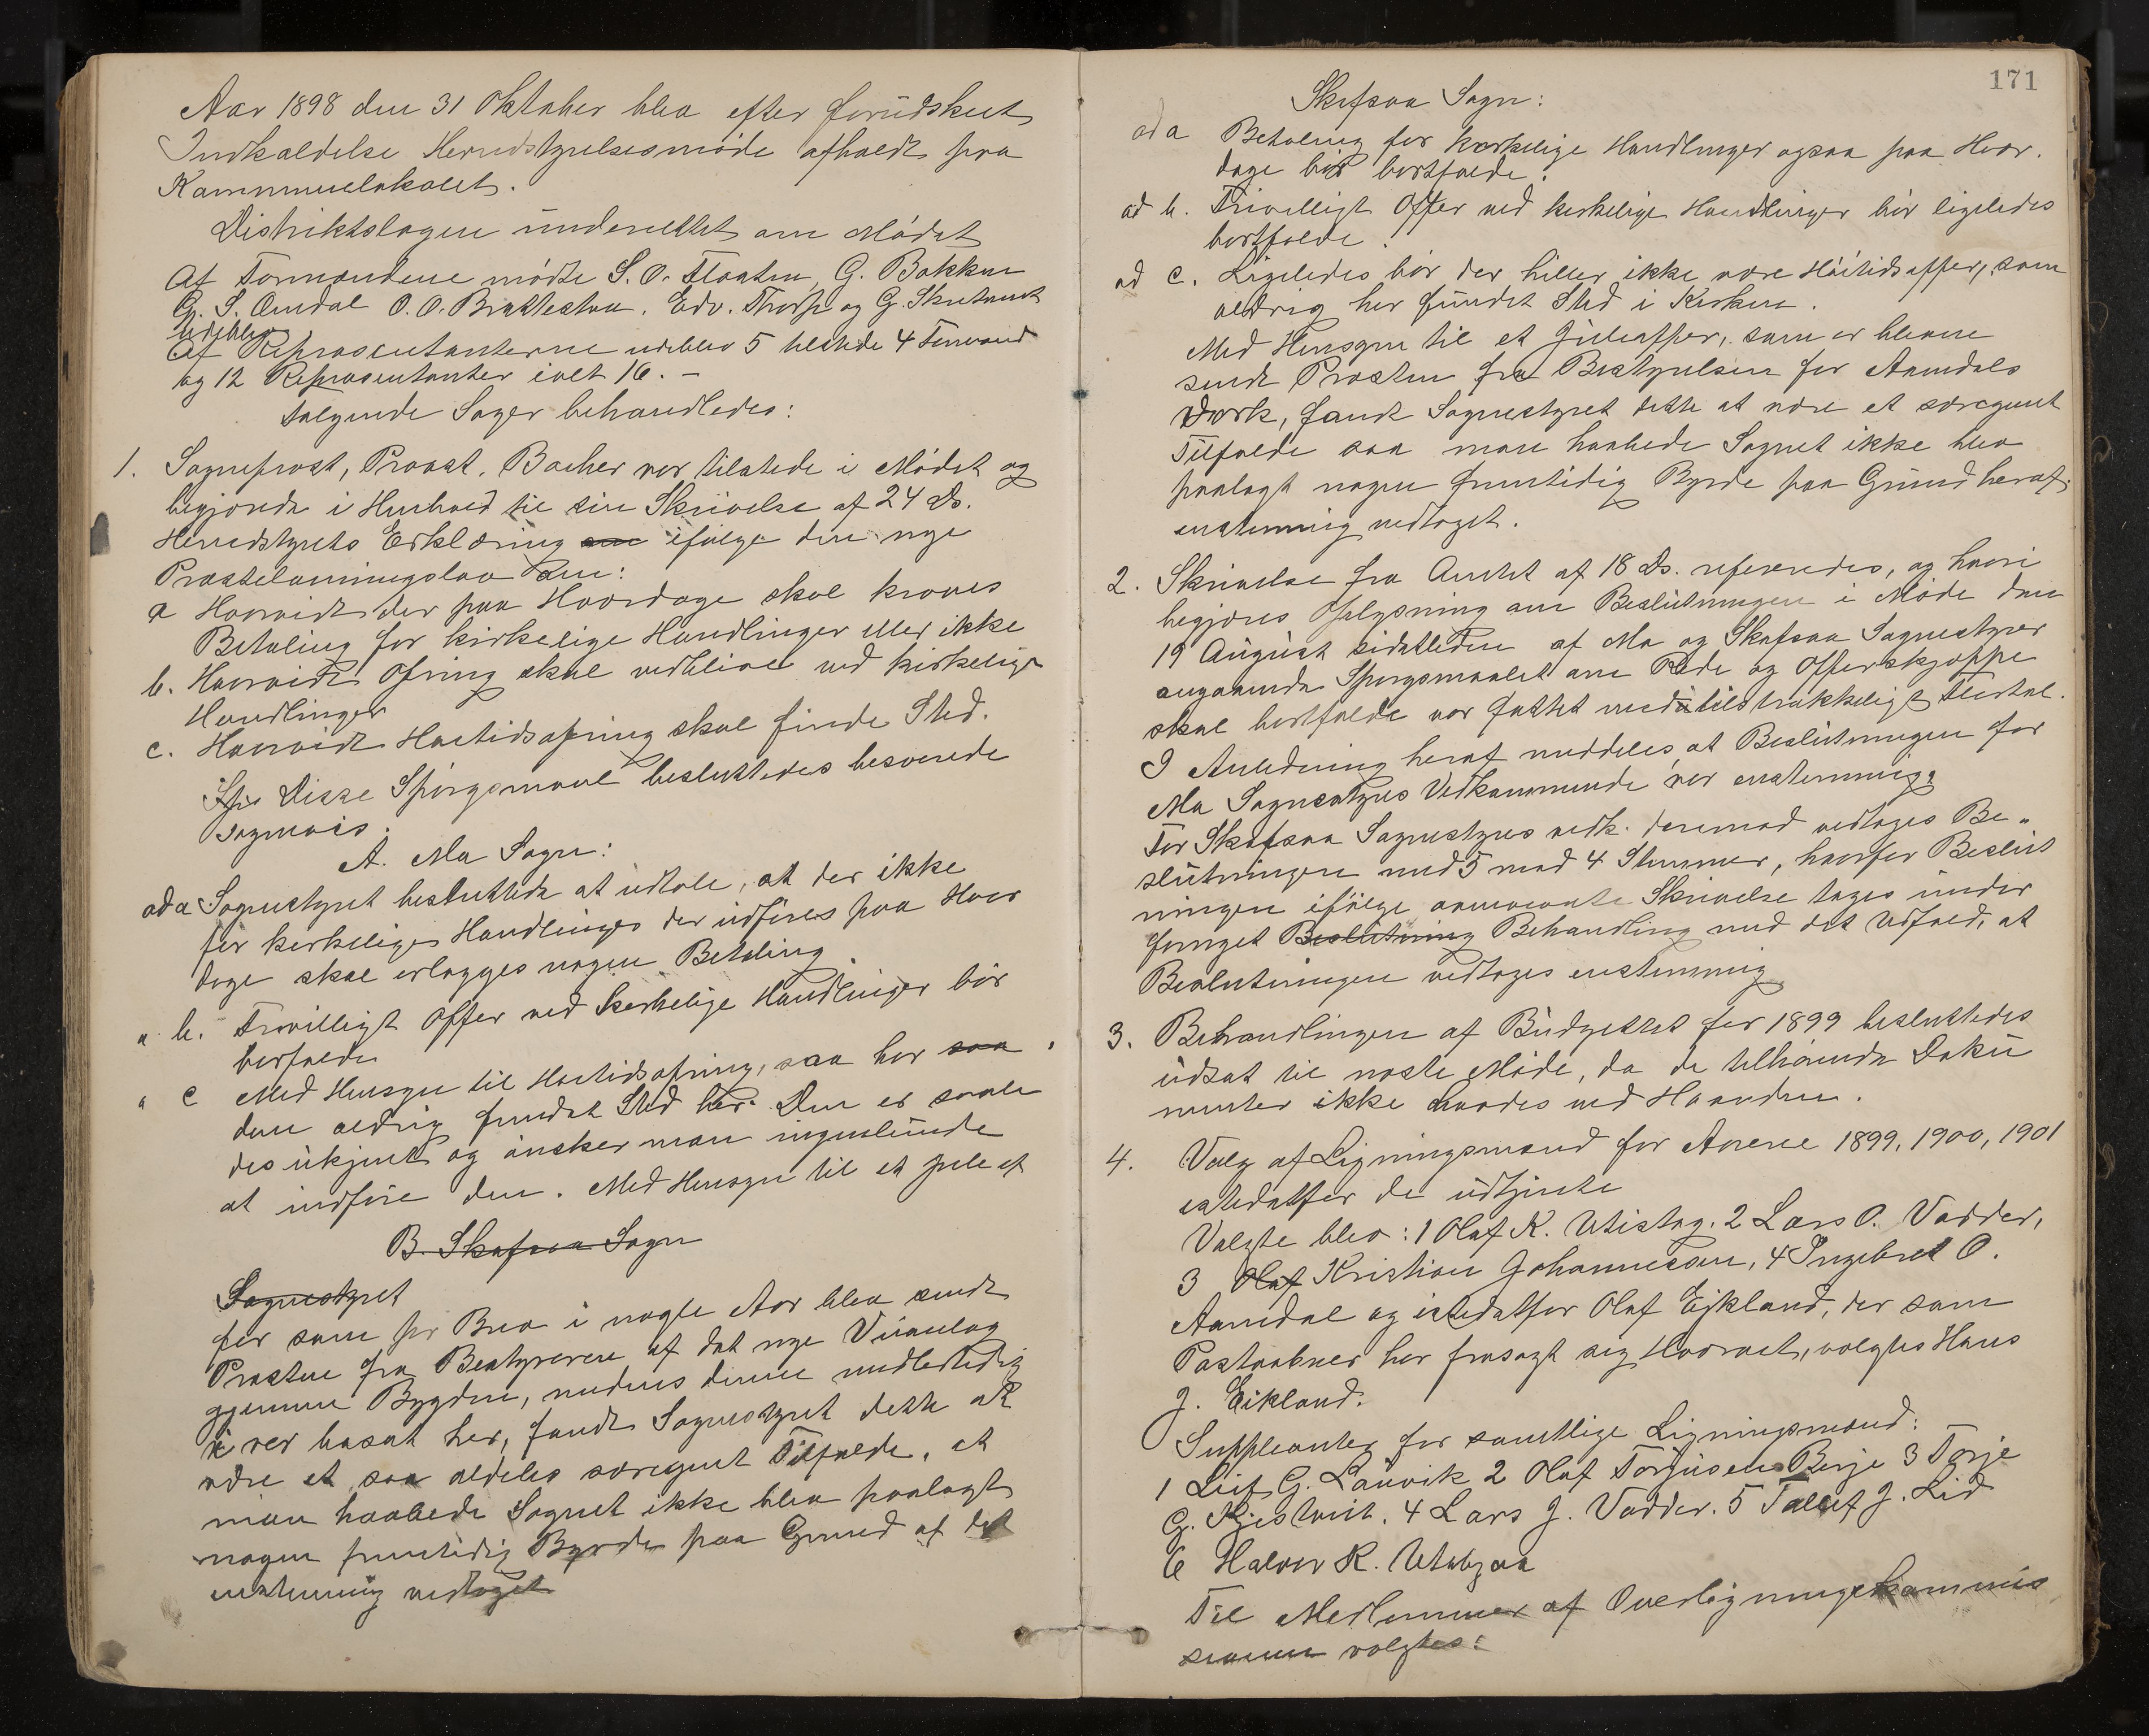 Aar 1898 den 31 Oktober blev efter forudskeet
Indkaldelse Herredstyrelsesmøde afholdt paa
Kommunelokalet.
Distriktslægen underrettet om Mødet
Af Formændene mødte S. O. Flaaten, G. Bakken
G. S. Omdal O. O. Brattestaa. Edv. Thorp og G. Skutvedt
udeblev
Af Repræsentanterne udeblev 5 tilstede 4 Formænd
og 12 Repræsentanter ialt 16. –
Følgende Sager behandledes:
1. Sogneprest, Provst. Bacher var tilstede i Mødet og
begjærede i Henhold til sin Skrivelse af 24 ds.
Herredstyrets Erklæring om ifølge den nye
Prestelønningslov om:
a Hvorvidt der paa Hverdage skal kræves
Betaling for kirkelige Handlinger eller ikke
b. Hvorvidt Ofring skal vedblive ved kirkelige
Handlinger
c. Hvorvidt Høitidsofring skal finde Sted.
Disse Spørgsmaal besluttedes besvarede
sognevis.
A. Mo Sogn:
ad a Sognestyret besluttede at udtale, at der ikke
for kirkelige Handlinger der udføres paa Hver
dage skal erlægges nogen Betaling.
" b. Frivilligt Offer ved kirkelige Handlinger bør
borfalde
" c Med Hensyn til Høitidsofring, saa har saa
den aldrig fundet Sted her. Den er saale
des ukjent og ønsker man ingenlunde
at indføre den. Med Hensyn til et Juleof
B. Skafsaa Sogn
Sognestyret
fer som pr Brev i nogle Aar blev sendt
Prosten fra Bestyreren af det nye Viianlæg
gjennem Bygden, medens denne midlertidig
var bosat her, fandt Sognestyret dette at
være et saa aldeles særegent Tilfælde, at
man haabede Sognet ikke blev paalagt
nogen fremtidig Byrde paa Grund af det
enstemmig vedtaget
171
Skafsaa Sogn:
ad a Betaling for kirkelige Handlinger ogsaa paa Hver.
dage bør bortfalde.
ad b. Frivilligt Offer ved kirkelige Handlinger bør ligeledes
bortfalde.
ad c. Ligeledes bør der heller ikke være Høitidsoffer, som
aldrig har fundet Sted i Kirken.
Med Hensyn til et Juleoffer, som er bleven
sendt Prosten fra Bestyrelsen for Aamdals
Værk, fandt Sognestyret dette at være et særegent
Tilfælde saa man haabede Sognet ikke blev
paalagt nogen fremtidig Byrde paa Grund heraf.
enstemmig vedtaget.
2. Skrivelse fra Amtet af 18 ds. refereredes, og hvori
begjæres Oplysning om Beslutningen i Møde den
19 August sidstleden af Mo og Skafsaa Sognestyrer
angaaende Spørgsmaalet om Rede og Offerskjæppe
skal bortfalde var fattet med tilstrækkeligt Flertal.
I Anledning heraf meddeles, at Beslutningen for
Mo Sognestyres Vedkommende var enstemmig.
For Skafsaa Sognestyres vedk. deremod vedtoges Be"
slutningen med 5 mod 4 Stemmer, hvorfor Beslut
ningen ifølge omnævnte Skrivelse toges under
fornyet Beslutning Behandling med det Udfald, at
Beslutningen vedtoges enstemmig.
3. Behandlingen af Budgettet for 1899 besluttedes
udsat til næste Møde, da de tilhørende Doku
menter ikke havdes ved Haanden.
4. Valg af Ligningsmænd for Aarene 1899, 1900, 1901
istedetfor de udtjente
Valgte blev: 1 Olaf K. Utistog. 2 Lars O. Vadder,
3 Olaf Kristian Johannessen, 4 Ingebret O.
Aamdal og istedetfor Olaf Eikland, der som
Postaabner har frasagt sig Hvervet, valgtes Hans
J. Eikland.
Suppleanter for samtlige Ligningsmænd:
1 Leif G. Lauvik 2 Olaf Torjusen Berje 3 Torje
G. Kjestveit. 4 Lars J. Vadder. 5 Tallef J. Lid
6 Halvor K. Utabjaa
Til Medlemmer af Overligningskommis
sionen valgtes: